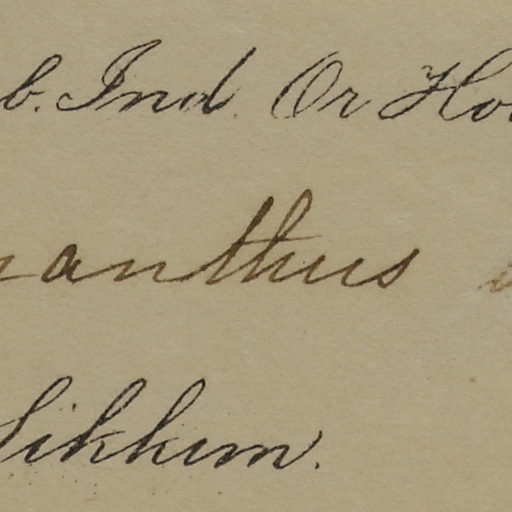 b. Ind. Or. Ho
anthus
Sikkim.